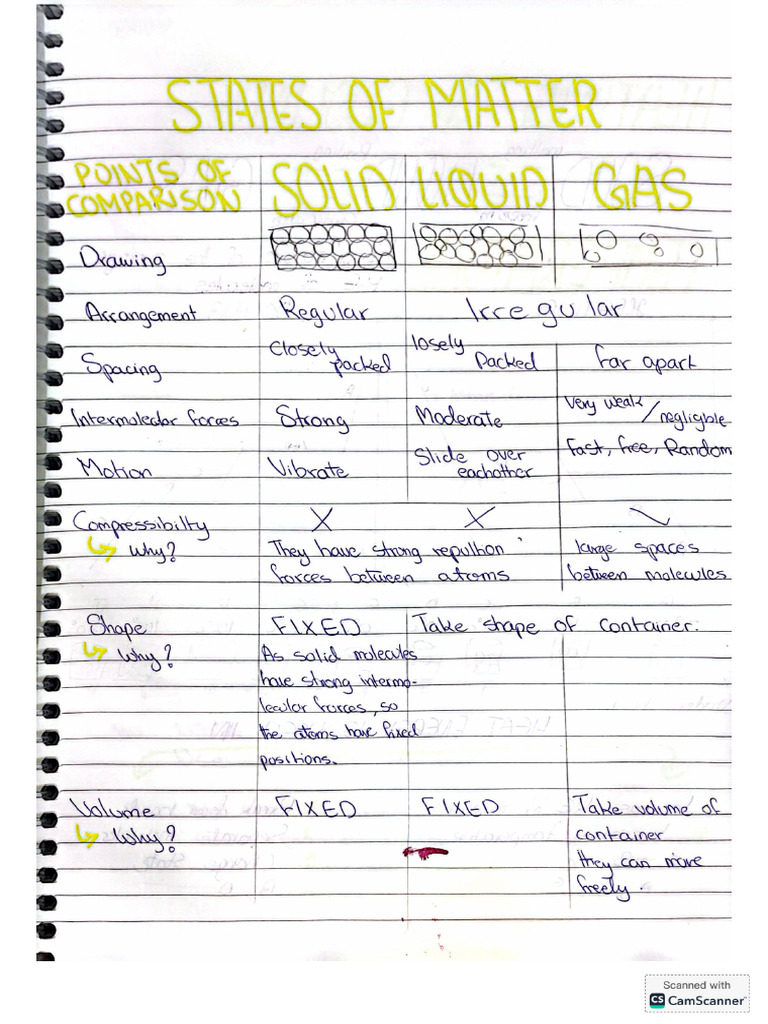 STATES OF MATTER
POINTS OF COMPARISON SOLID LIQUID GAS
Drawing
Arrangement Regular Irregular
Spacing Closely packed losely Packed far apart
Intermolecular forces Strong Moderate Very weak / negligible
Motion Vibrate Slide over eachother Fast, free, Random
Compressibilty X X
Why? They have strong repulhon large spaces
forces between atoms between molecules
Shape FIXED Take shape of container.
Why? As solid molecules
have strong intermo-
lecular forces, so
the atoms have fixed
positions.
Volume FIXED FIXED Take volume of
Why? container
they can move
freely.
Scanned with
CS CamScanner